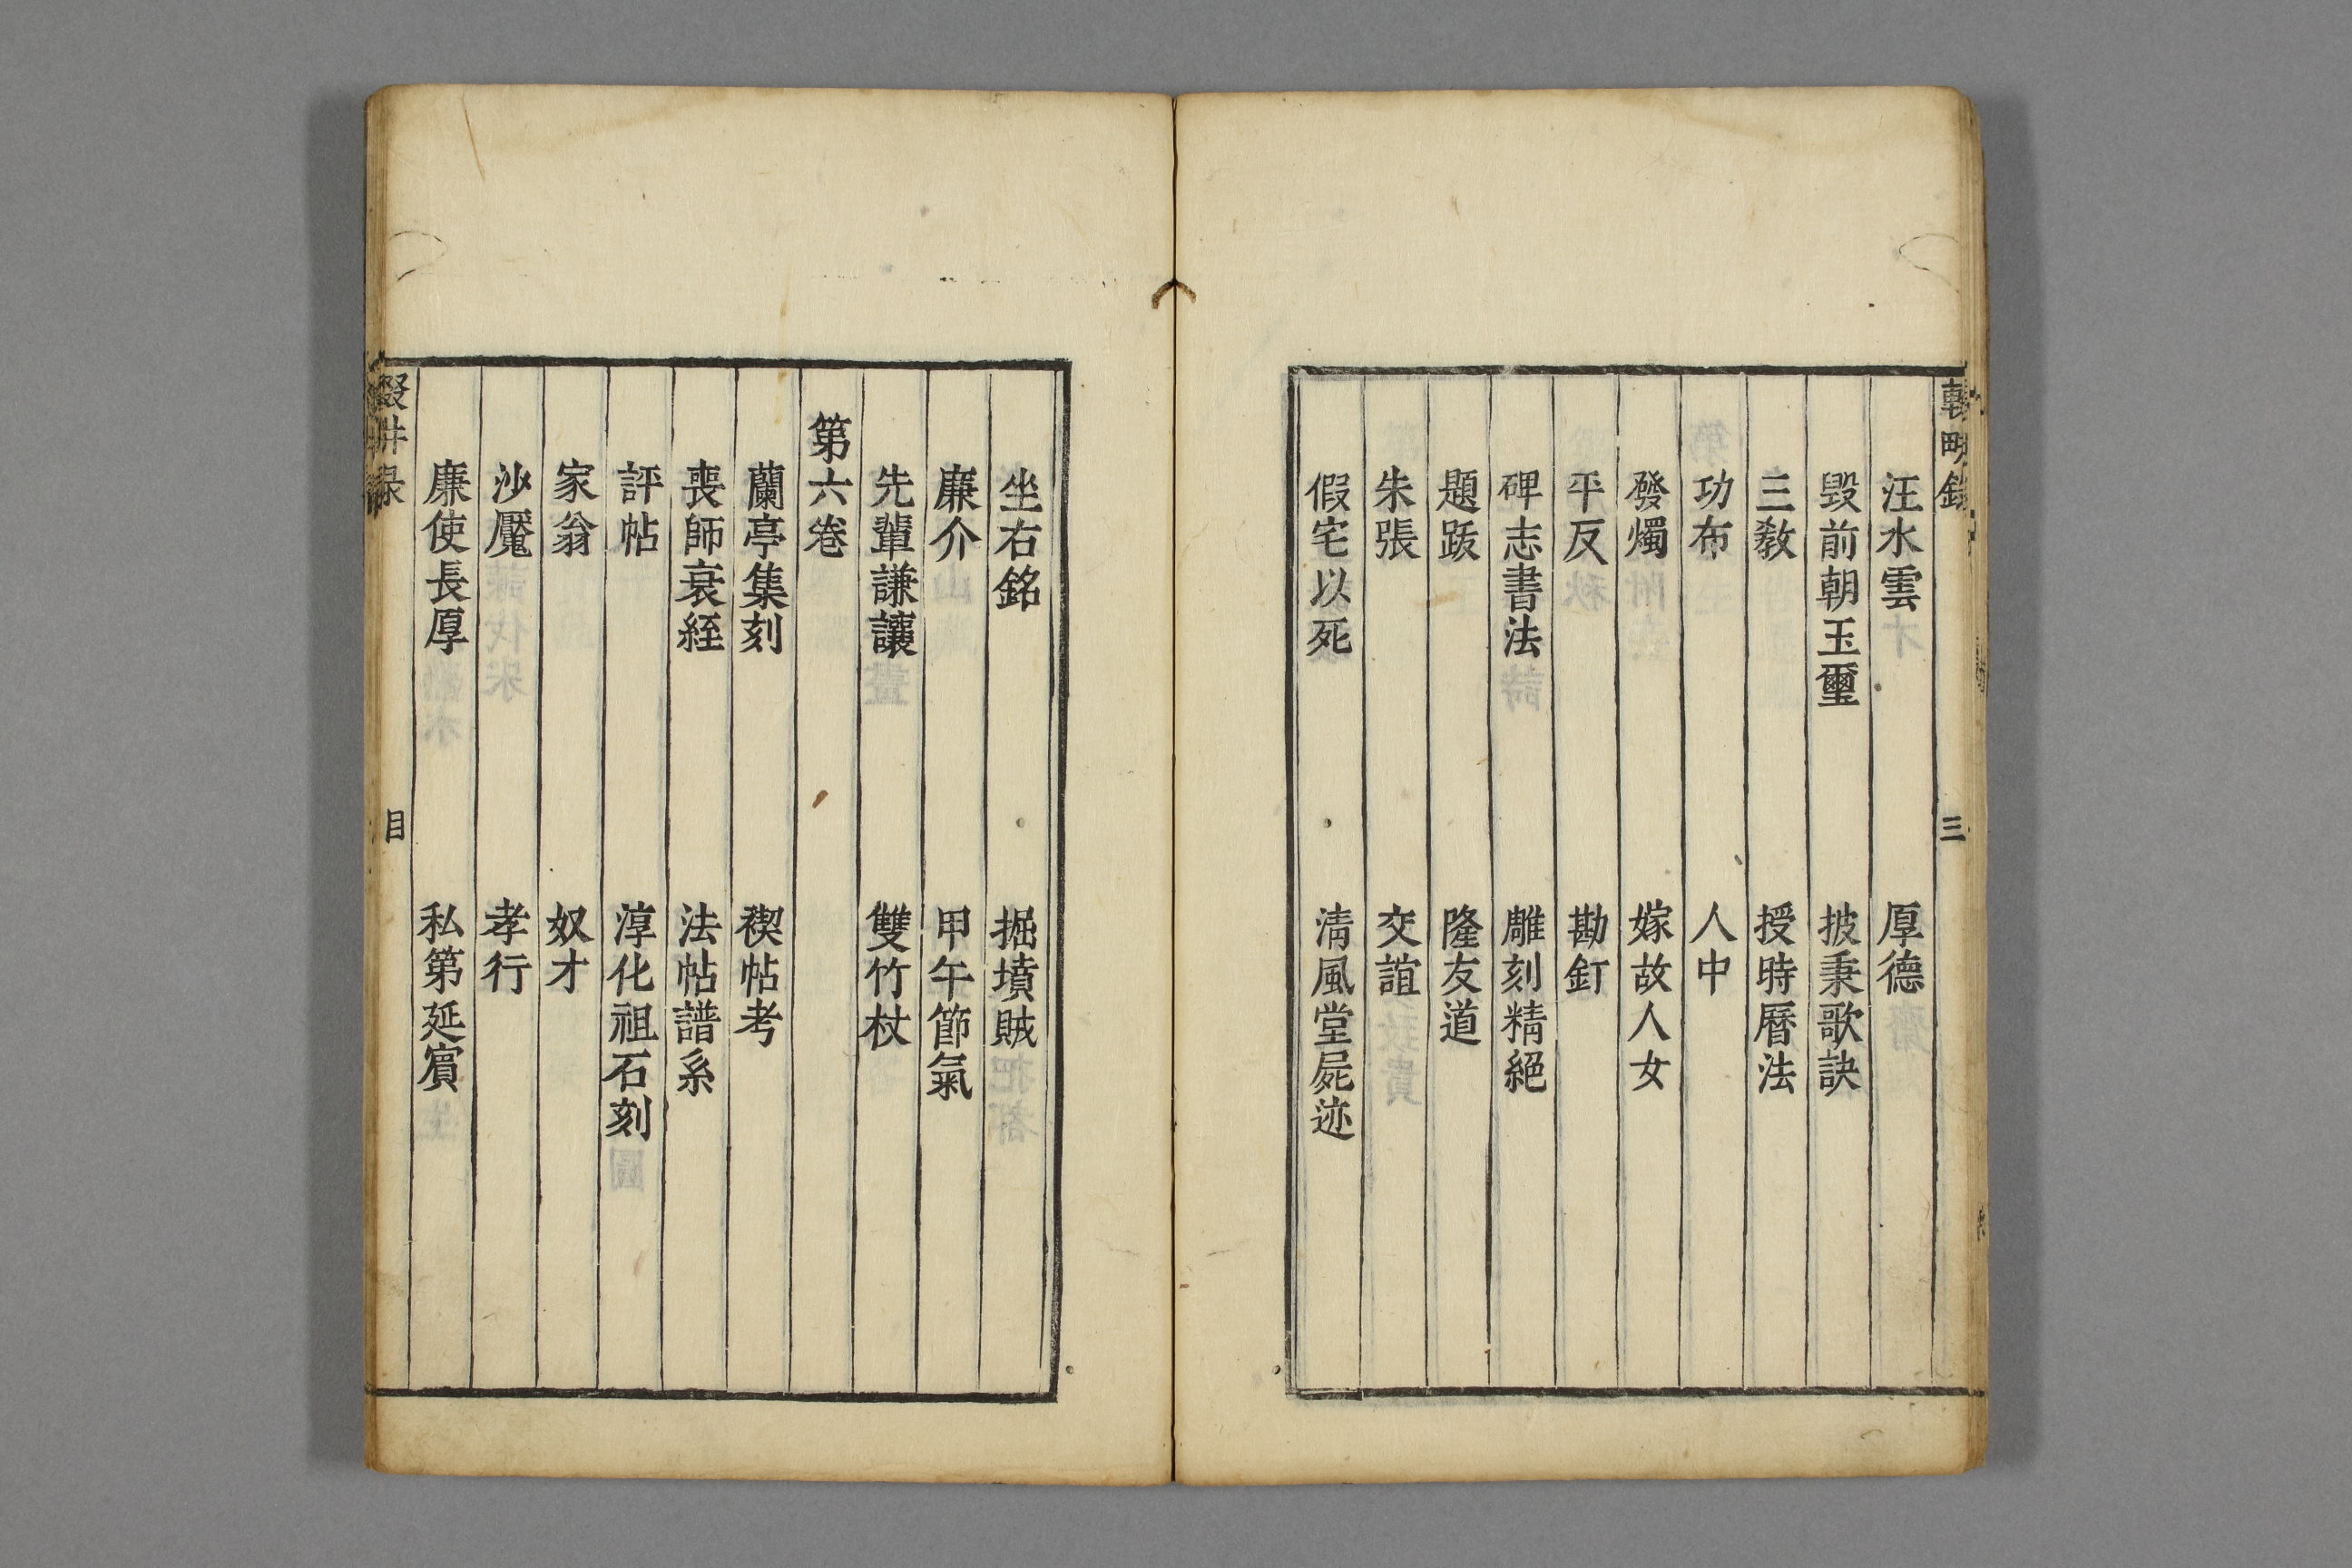 汪水雲 厚德
毀前朝玉璽 披秉歌訣
三教 授時曆法
功布 人中
發燭 嫁故人女
平反 勘釘
碑志書法 雕刻精絕
題跋 隆友道
朱張 交誼
假宅以死 清風堂屍迹
三
坐右銘 掘墳賊
廉介 甲午節氣
先輩謙讓 雙竹杖
第六卷
蘭亭集刻 禊帖考
喪師衰絰 法帖譜系
評帖 淳化祖石刻
家翁 奴才
沙魘 孝行
廉使長厚 私第延賓
目